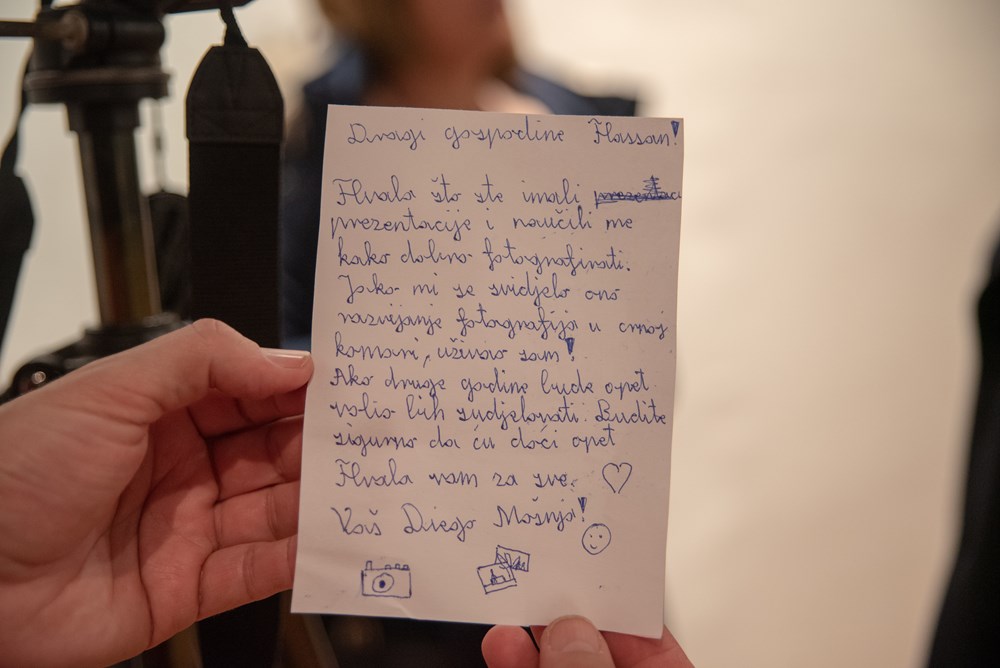 Dragi gospodine Hassan!
Hvala što ste imali prezentaci
prezentacije i naučili me
kako dobro fotografirati.
Jako mi se svidjelo ono
razvijanje fotografija u crnoj
komori, uživao sam!
Ako druge godine bude opet
volio bih sudjelovati. Budite
sigurno da ću doći opet
Hvala vam za sve.
Vaš Diego Mošnja!